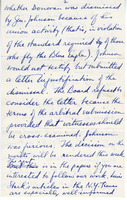 whether Donovan was dismissed
by Gen. Johnson because of his
union activity (that is, in violation
of the standard required by of those
who fly the Blue Eagle). Johnson
would not testify but submitted
a letter in justification of the
dismissal. The Board refused to
consider the letter because the
terms of the arbitral submission
provided that witnesses should
be cross-examined. Johnson
was furious. The decision on the
will be rendered this week
is in the papers if you are
interested to follow our work.
Stark's articles in the N.Y. Times
are especially well informed